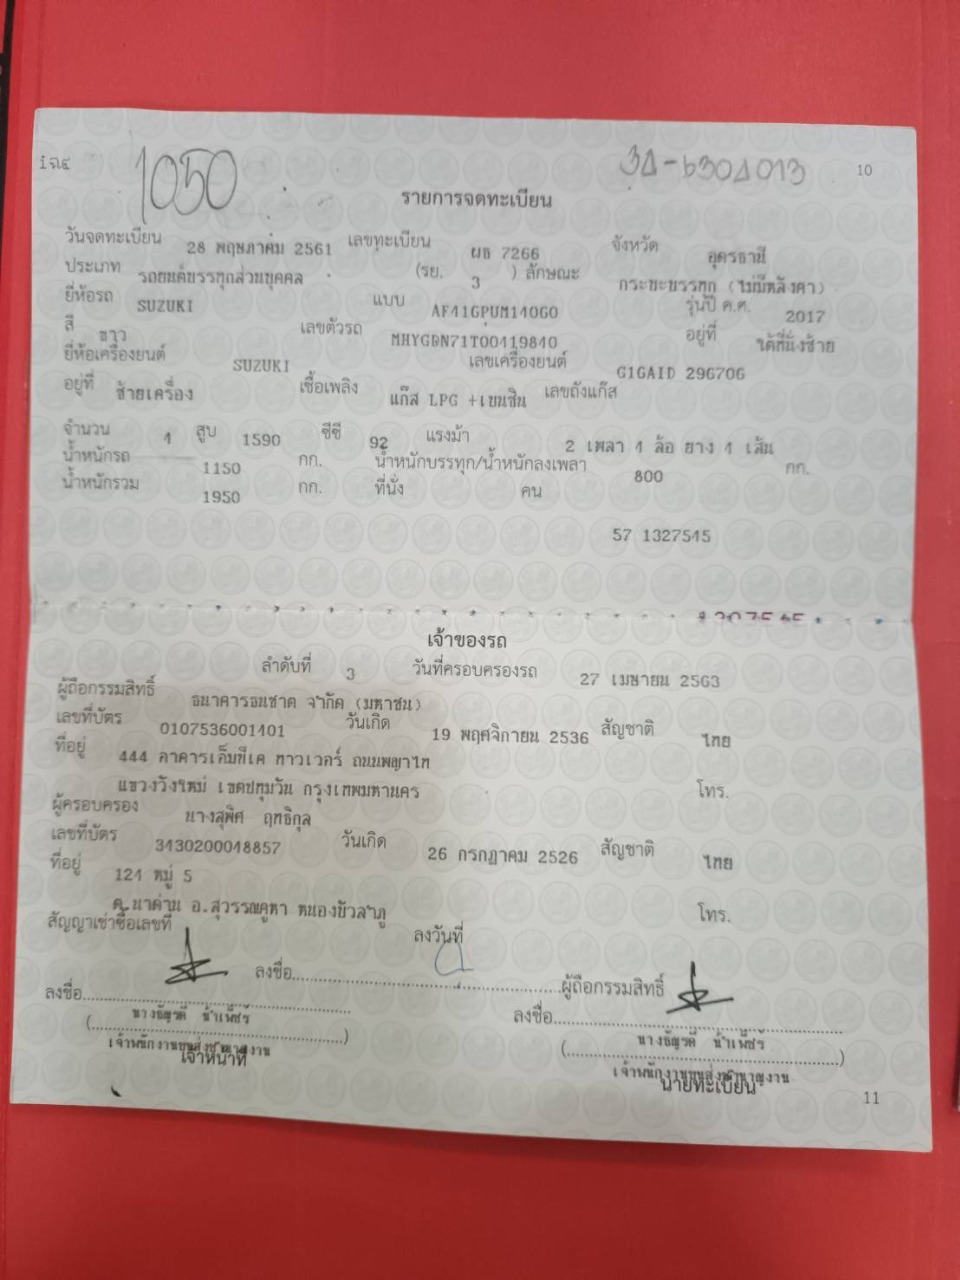 1050
10
รายการจดทะเบียน
วันจดทะเบียน 28 พฤษภาคม 2561 เลขทะเบียน ผธ 7266 จังหวัด อุดรธานี
ประเภท รถยนต์บรรทุกส่วนบุคคล (รย. 3 ) ลักษณะ กระบะบรรทุก (ไม่มีหลังคา)
ยี่ห้อรถ SUZUKI แบบ AF41GPUM140G0 รุ่นปี ค.ศ. 2017
สี ขาว เลขตัวรถ MHYGDN71T00419840 อยู่ที่ ใต้ที่นั่งซ้าย
ยี่ห้อเครื่องยนต์ SUZUKI เลขเครื่องยนต์ G16AID 296706
อยู่ที่ ซ้ายเครื่อง เชื้อเพลิง แก๊ส LPG +เบนซิน เลขถังแก๊ส
จำนวน 4 สูบ 1590 ซีซี 92 แรงม้า 2 เพลา 4 ล้อ ยาง 4 เส้น
น้ำหนักรถ 1150 กก. น้ำหนักบรรทุก/น้ำหนักลงเพลา 800 กก.
น้ำหนักรวม 1950 กก. ที่นั่ง คน
57 1327545
เจ้าของรถ
ลำดับที่ 3 วันที่ครอบครองรถ 27 เมษายน 2563
ผู้ถือกรรมสิทธิ์ ธนาคารธนชาต จำกัด (มหาชน)
เลขที่บัตร 0107536001401 วันเกิด 19 พฤศจิกายน 2536 สัญชาติ ไทย
ที่อยู่ 444 อาคารเอ็มบีเค ทาวเวอร์ ถนนพญาไท
แขวงวังใหม่ เขตปทุมวัน กรุงเทพมหานคร โทร.
ผู้ครอบครอง นางสุพิศ ฤทธิกุล
เลขที่บัตร 3430200048857 วันเกิด 26 กรกฎาคม 2526 สัญชาติ ไทย
ที่อยู่ 124 หมู่ 5
ต.นาด่าน อ.สุวรรณคูหา หนองบัวลำภู โทร.
สัญญาเช่าซื้อเลขที่ ลงวันที่
ลงชื่อ ผู้ถือกรรมสิทธิ์
ลงชื่อ ลงชื่อ
เจ้าพนักงานขนส่งชำนาญงาน เจ้าพนักงานขนส่งชำนาญงาน
เจ้าหน้าที่ นายทะเบียน
11